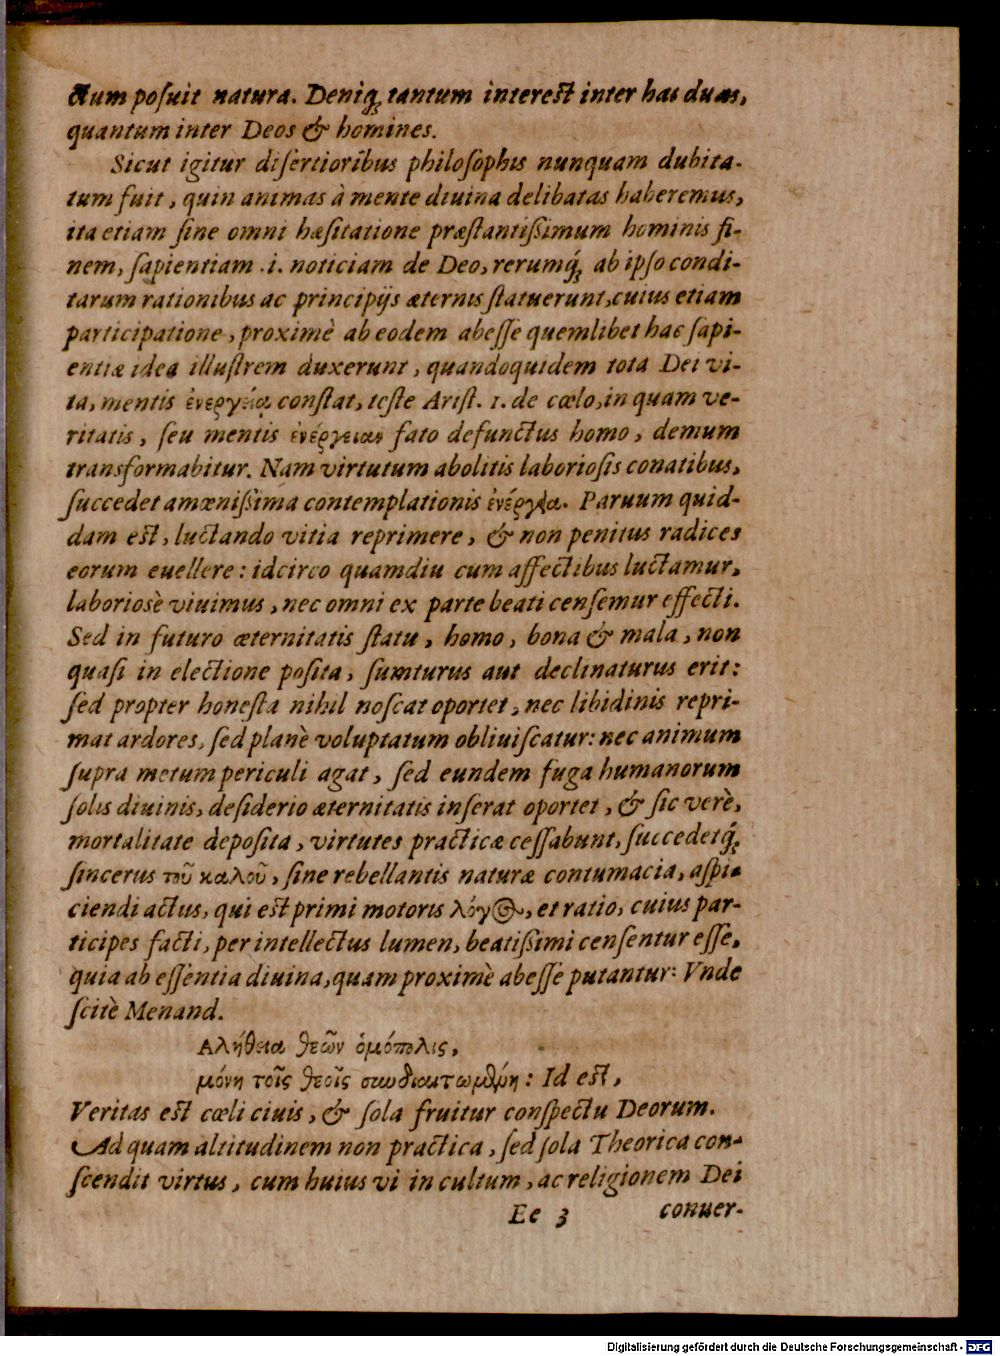 ctum posuit natura. Deniq; tantum interest inter has duas,
quantum inter Deos & homines.
Sicut igitur disertioribus philosophis nunquam dubita-
tum fuit, quin animas à mente diuina delibatas haberemus,
ita etiam sine omni hæsitatione præstantißimum hominis fi-
nem, sapientiam .i. noticiam de Deo, rerumq́; ab ipso condi-
tarum rationibus ac principijs æternis statuerunt, cuius etiam
participatione, proximè ab eodem abesse quemlibet hac sapi-
entiæ idea illustrem duxerunt, quandoquidem tota Dei vi-
ta, mentis ἐνεργείᾳ constat, teste Arist. 1. de cœlo, in quam ve-
ritatis, seu mentis ἐνέργειαν fato defunctus homo, demum
transformabitur. Nam virtutum abolitis laboriosis conatibus,
succedet amœnißima contemplationis ἐνέργεια. Paruum quid-
dam est, luctando vitia reprimere, & non penitus radices
eorum euellere: idcirco quamdiu cum affectibus luctamur,
laboriosè viuimus, nec omni ex parte beati censemur effecti.
Sed in futuro æternitatis statu, homo, bona & mala, non
quasi in electione posita, sumturus aut declinaturus erit:
sed propter honesta nihil noscat oportet, nec libidinis repri-
mat ardores, sed planè voluptatum obliuiscatur: nec animum
supra metum periculi agat, sed eundem fuga humanorum
solis diuinis, desiderio æternitatis inserat oportet, & sic verè,
mortalitate deposita, virtutes practicæ cessabunt, succedetq́;
sincerus τοῦ καλοῦ, sine rebellantis naturæ contumacia, aspi-
ciendi actus, qui est primi motoris λόγος, et ratio, cuius par-
ticipes facti, per intellectus lumen, beatißimi censentur esse,
quia ab essentia diuina, quam proximè abesse putantur: Vnde
scitè Menand.
Αλήθεια θεῶν ὁμόπολις,
μόνη τοῖς θεοῖς συνδιαιτωμένη: Id est,
Veritas est cœli ciuis, & sola fruitur conspectu Deorum.
Ad quam altitudinem non practica, sed sola Theorica con-
scendit virtus, cum huius vi in cultum, ac religionem Dei
Ee 3 conuer-
Digitalisierung gefördert durch die Deutsche Forschungsgemeinschaft - DFG